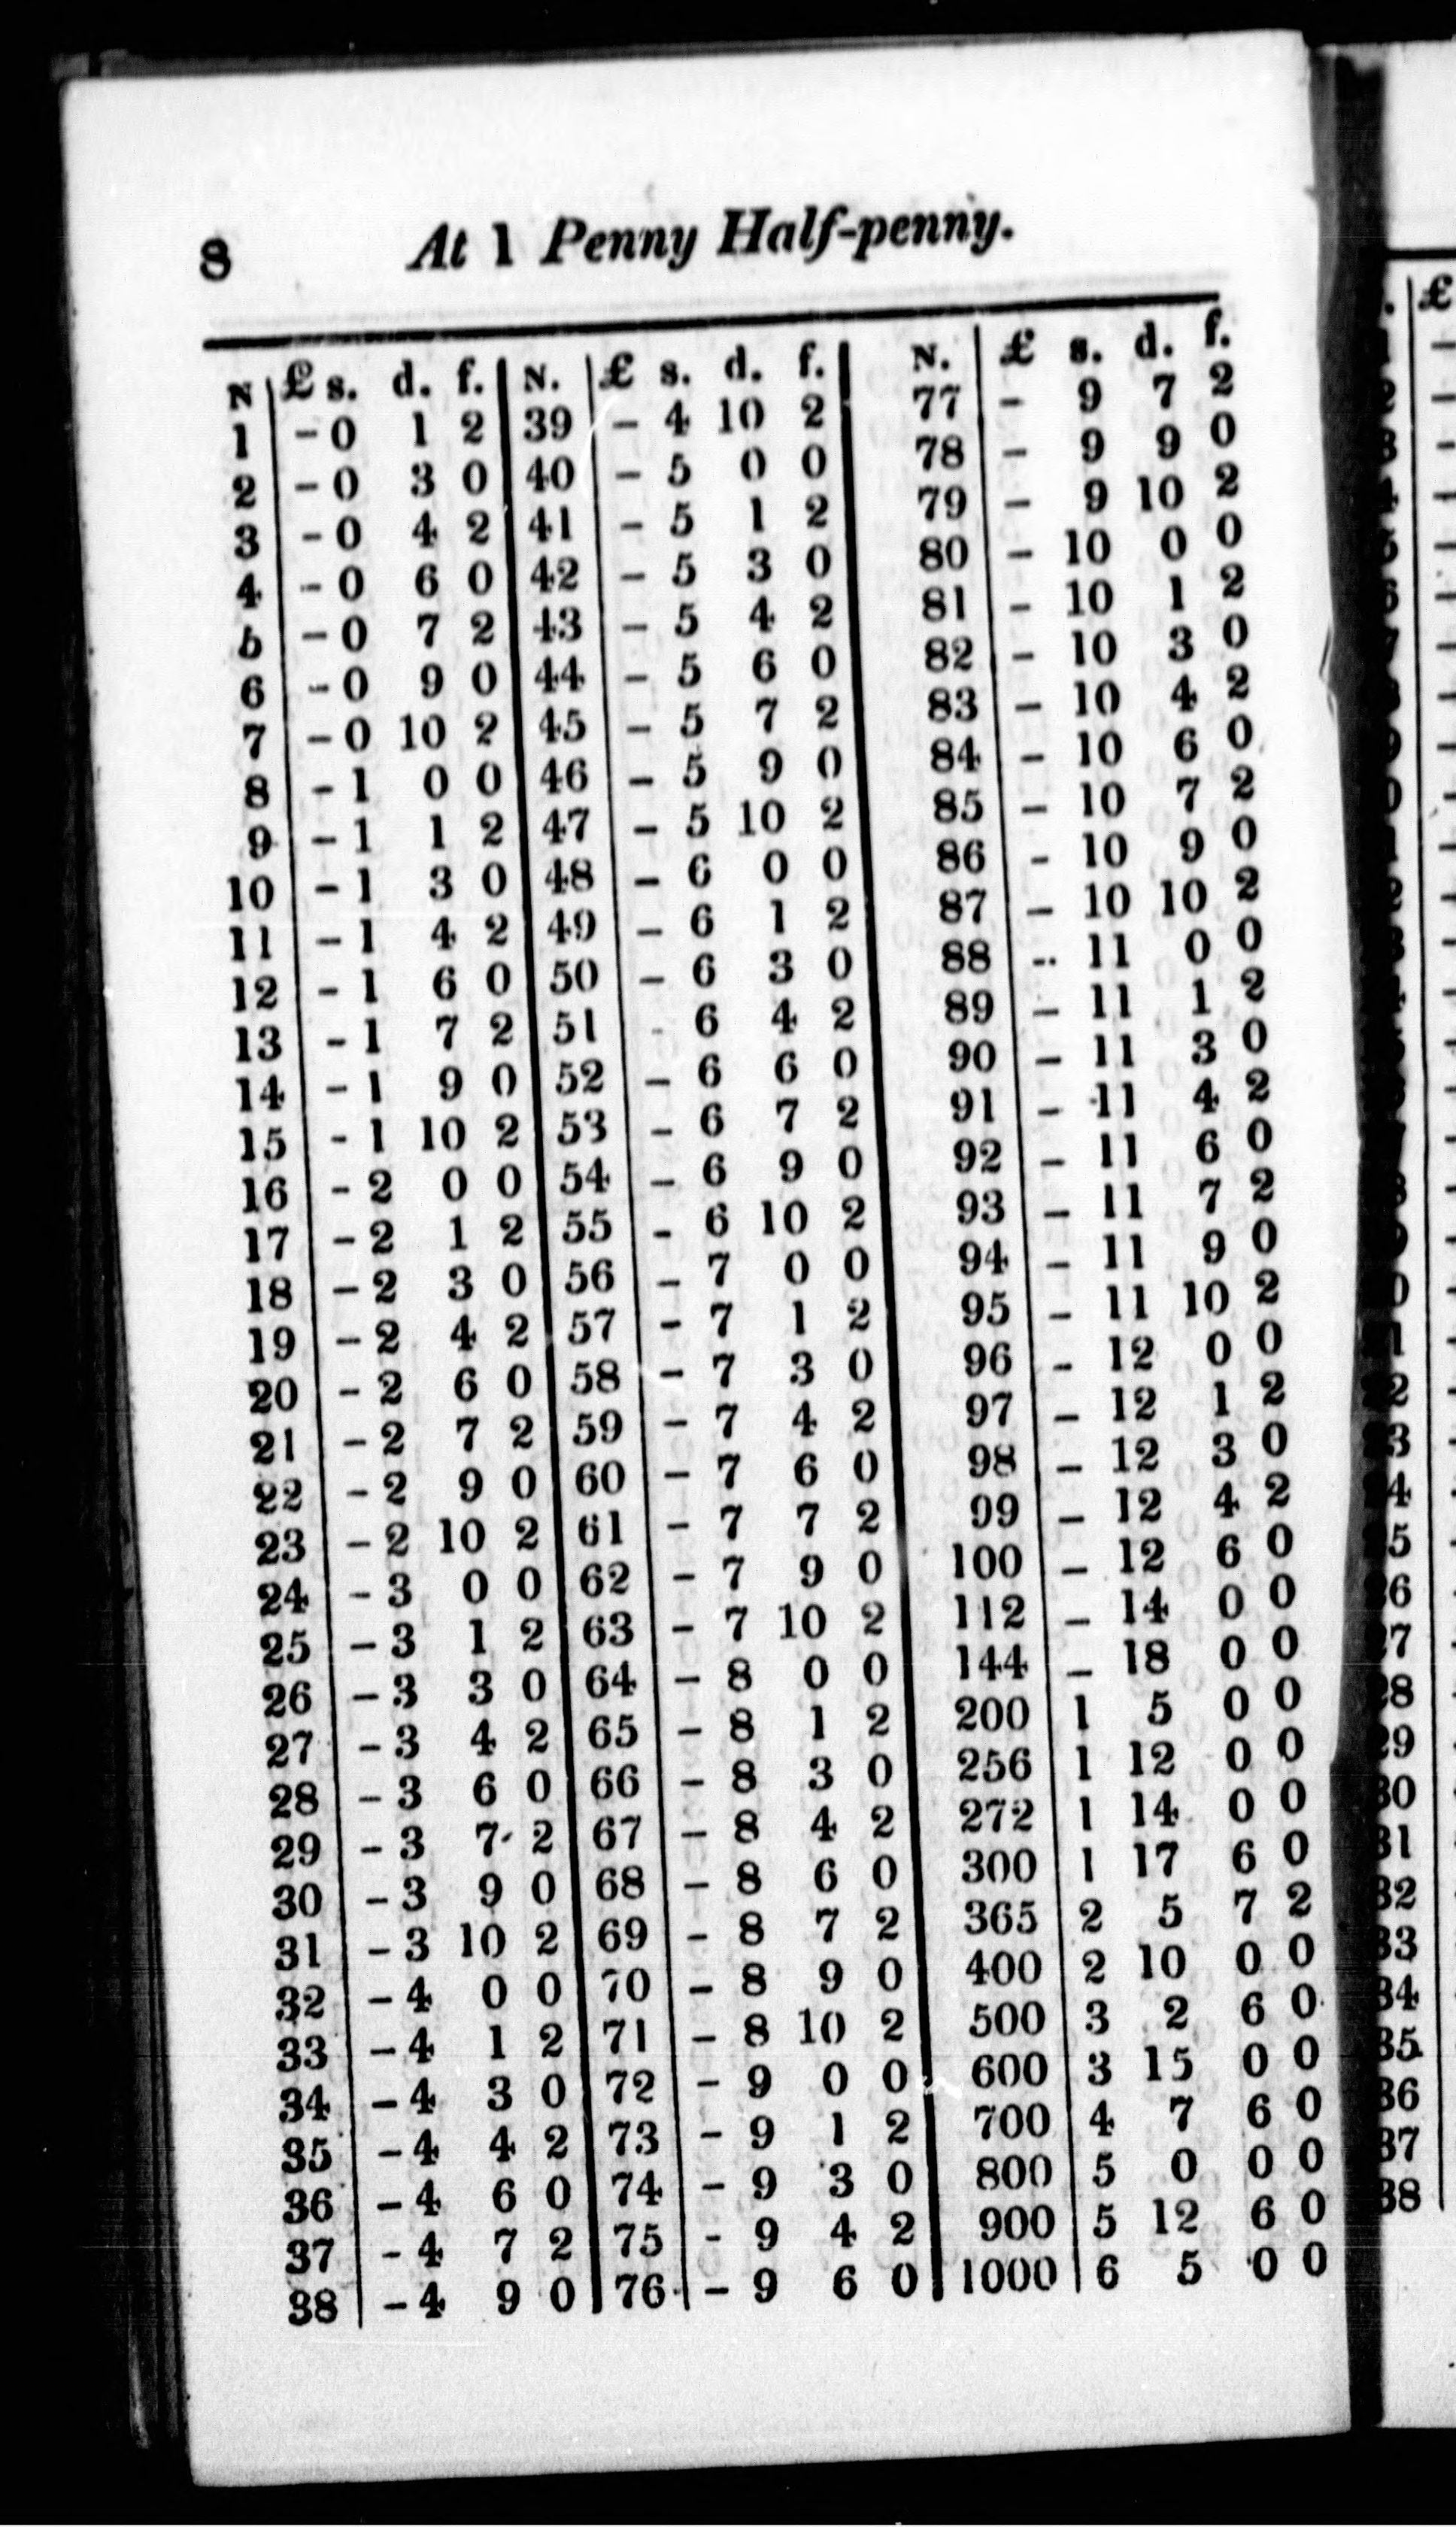 8 At 1 Penny Half-penny.
N £ s. d. f. N. £ s. d. f. N. £ s. d. f.
1 - 0 1 2 39 - 4 10 2 77 - 9 7 2
2 - 0 3 0 40 - 5 0 0 78 - 9 9 0
3 - 0 4 2 41 - 5 1 2 79 - 9 10 2
4 - 0 6 0 42 - 5 3 0 80 - 10 0 0
5 - 0 7 2 43 - 5 4 2 81 - 10 1 2
6 - 0 9 0 44 - 5 6 0 82 - 10 3 0
7 - 0 10 2 45 - 5 7 2 83 - 10 4 2
8 - 1 0 0 46 - 5 9 0 84 - 10 6 0
9 - 1 1 2 47 - 5 10 2 85 - 10 7 2
10 - 1 3 0 48 - 6 0 0 86 - 10 9 0
11 - 1 4 2 49 - 6 1 2 87 - 10 10 2
12 - 1 6 0 50 - 6 3 0 88 - 11 0 0
13 - 1 7 2 51 - 6 4 2 89 - 11 1 2
14 - 1 9 0 52 - 6 6 0 90 - 11 3 0
15 - 1 10 2 53 - 6 7 2 91 - 11 4 2
16 - 2 0 0 54 - 6 9 0 92 - 11 6 0
17 - 2 1 2 55 - 6 10 2 93 - 11 7 2
18 - 2 3 0 56 - 7 0 0 94 - 11 9 0
19 - 2 4 2 57 - 7 1 2 95 - 11 10 2
20 - 2 6 0 58 - 7 3 0 96 - 12 0 0
21 - 2 7 2 59 - 7 4 2 97 - 12 1 2
22 - 2 9 0 60 - 7 6 0 98 - 12 3 0
23 - 2 10 2 61 - 7 7 2 99 - 12 4 2
24 - 3 0 0 62 - 7 9 0 100 - 12 6 0
25 - 3 1 2 63 - 7 10 2 112 - 14 0 0
26 - 3 3 0 64 - 8 0 0 144 - 18 0 0
27 - 3 4 2 65 - 8 1 2 200 1 5 0 0
28 - 3 6 0 66 - 8 3 0 256 1 12 0 0
29 - 3 7 2 67 - 8 4 2 272 1 14 0 0
30 - 3 9 0 68 - 8 6 0 300 1 17 6 0
31 - 3 10 2 69 - 8 7 2 365 2 5 7 2
32 - 4 0 0 70 - 8 9 0 400 2 10 0 0
33 - 4 1 2 71 - 8 10 2 500 3 2 6 0
34 - 4 3 0 72 - 9 0 0 600 3 15 0 0
35 - 4 4 2 73 - 9 1 2 700 4 7 6 0
36 - 4 6 0 74 - 9 3 0 800 5 0 0 0
37 - 4 7 2 75 - 9 4 2 900 5 12 6 0
38 - 4 9 0 76 - 9 6 0 1000 6 5 0 0